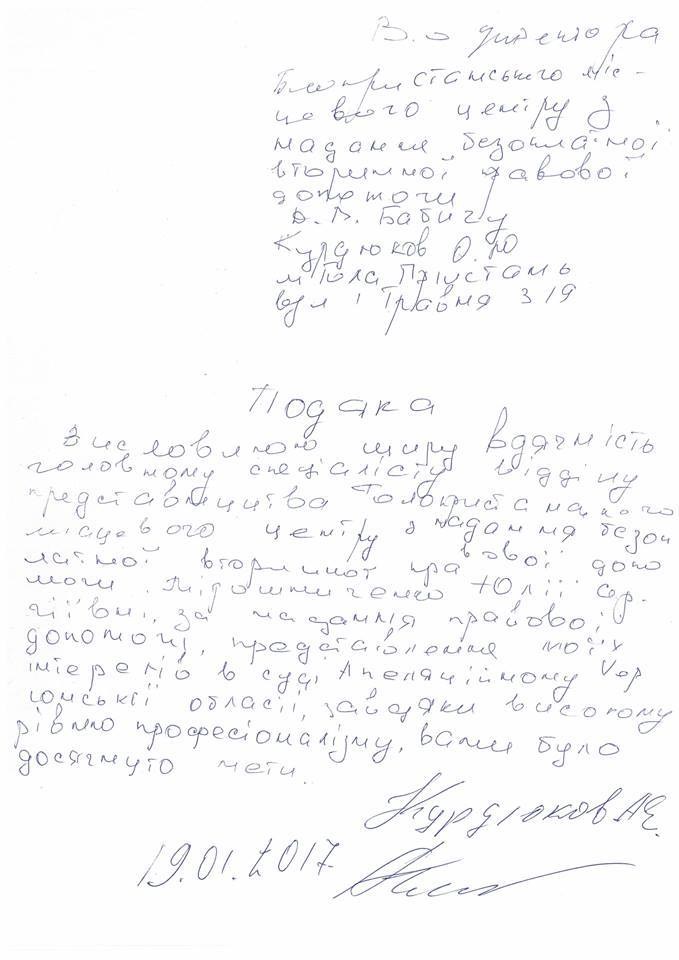 В.о директора
Голопристанського міс-
цевого центру з
надання безоплатної
вторинної правової
допомоги
Д.В. Бабичу
Курдюков О.Ю
м Гола Пристань
вул 1 Травня 319
Подяка
Висловлюю щиру вдячність
головному спеціалісту відділу
представництва Голопристанского
місцевого центру з надання безоп
латної вторинної правової допо
моги
Юлії Сер.
гіївні, за надання правової
допомоги, представлення моїх
інтересів в суді Апеляційному Хер
сонської області, завдяки високому
рівню професіоналізму, вами було
досягнуто мети.
Курдюков
19.01.2017